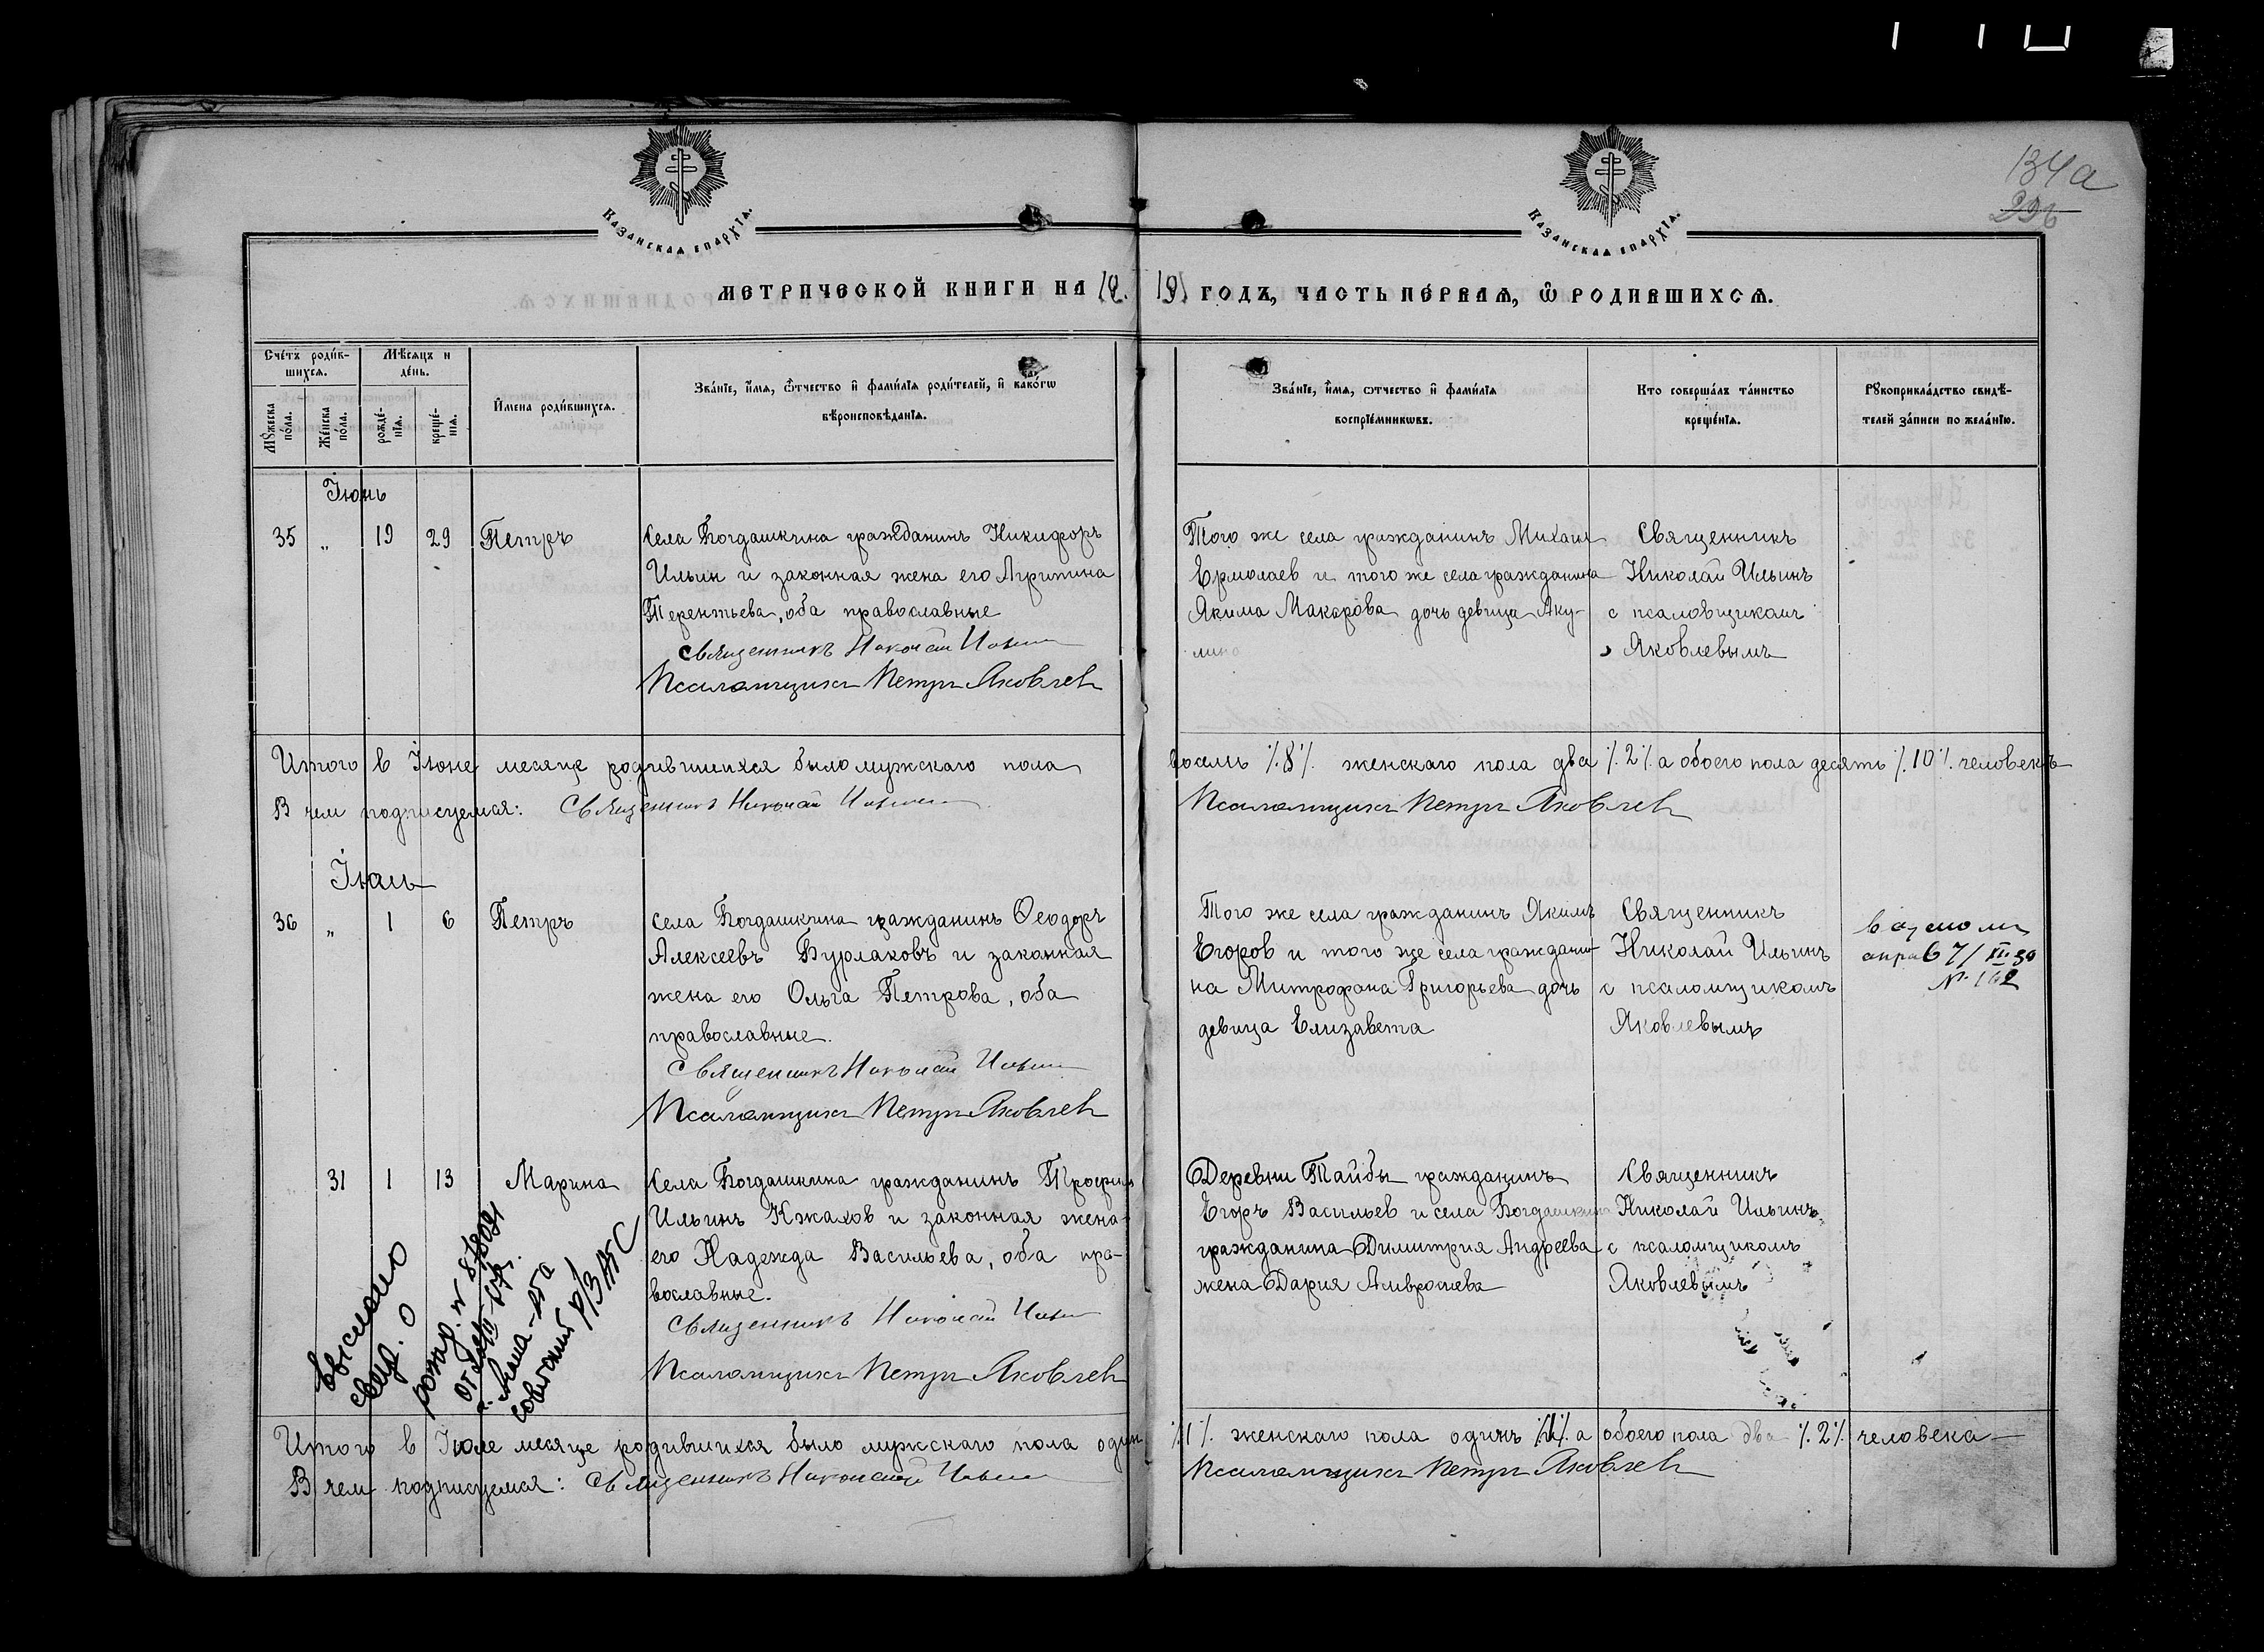 134а
226
Казанская епархїя.
Казанская епархїя.
Метрической книги на 19
19 годъ, часть первая, ѿ родившихся.
Счетъ родившихся.
Мужеска пола.
Женска пола.
Мѣсяцъ и день.
рождѣнїя.
крещенїя.
Имена родившихся.
Званїе, имя, ѿчество и фамилїя родителей, и какогѡ
вѣроисповѣданїя.
Званїе, имя, ѿчество и фамилїя
воспрїемникѡвъ.
Кто совершалъ таинство
крещенїя.
Рукоприкладство свидѣ-
телей записи по желанїю.
Іюнь
35 " 19 29 Петръ
Села Богдашкина гражданинъ Никифоръ
Ильин и законная жена его Агрипина
Терентьева, оба православные
Священникъ Николай Ильин
Псаломщикъ Петръ Яковлев
Того же села гражданинъ Михаил
Ермолаев и того же села гражданина
Якима Макарова дочь девица Аку-
лина
Священникъ
Николай Ильинъ
с псаломщикомъ
Яковлевымъ
Итого в Іюне месяце родившихся было мужскаго пола
восемь %8% женскаго пола два %2% а обоего пола десять %10% человекъ
В чем подписуемся: Священникъ Николай Ильин
Псаломщикъ Петръ Яковлев
Іюль
36 " 1 6 Петръ
Села Богдашкина гражданинъ Ѳеодоръ
Алексеевъ Бурлаковъ и законная
жена его Ольга Петрова, оба
православные.
Священникъ Николай Ильин
Псаломщикъ Петръ Яковлев
Того же села гражданинъ Якимъ
Егоров и того же села граждани-
на Митрофана Григорьева дочь
девица Елизавета
Священникъ
Николай Ильинъ
с псаломщикомъ
Яковлевымъ
№ 162
31 1 13 Марина
Села Богдашкина гражданинъ Трофим
Ильинъ Кжахов и законная жена
его Надежда Васильева, оба пра-
вославные.
Священникъ Николай Ильин
Псаломщикъ Петръ Яковлев
Деревни Тайбы гражданинъ
Егоръ Васильев и села Богдашкина
гражданина Димитрия Андреева
жена Дария Амвросиева
Священникъ
Николай Ильинъ
с псаломщикомъ
Яковлевымъ
Выслано
свид. о
рожд. №
советский р/ЗАГС
Итого в Іюле месяце родившихся было мужскаго пола один
%1% женскаго пола одинъ %1% а обоего пола два %2% человека
В чем подписуемся: Священникъ Николай Ильин
Псаломщикъ Петръ Яковлев